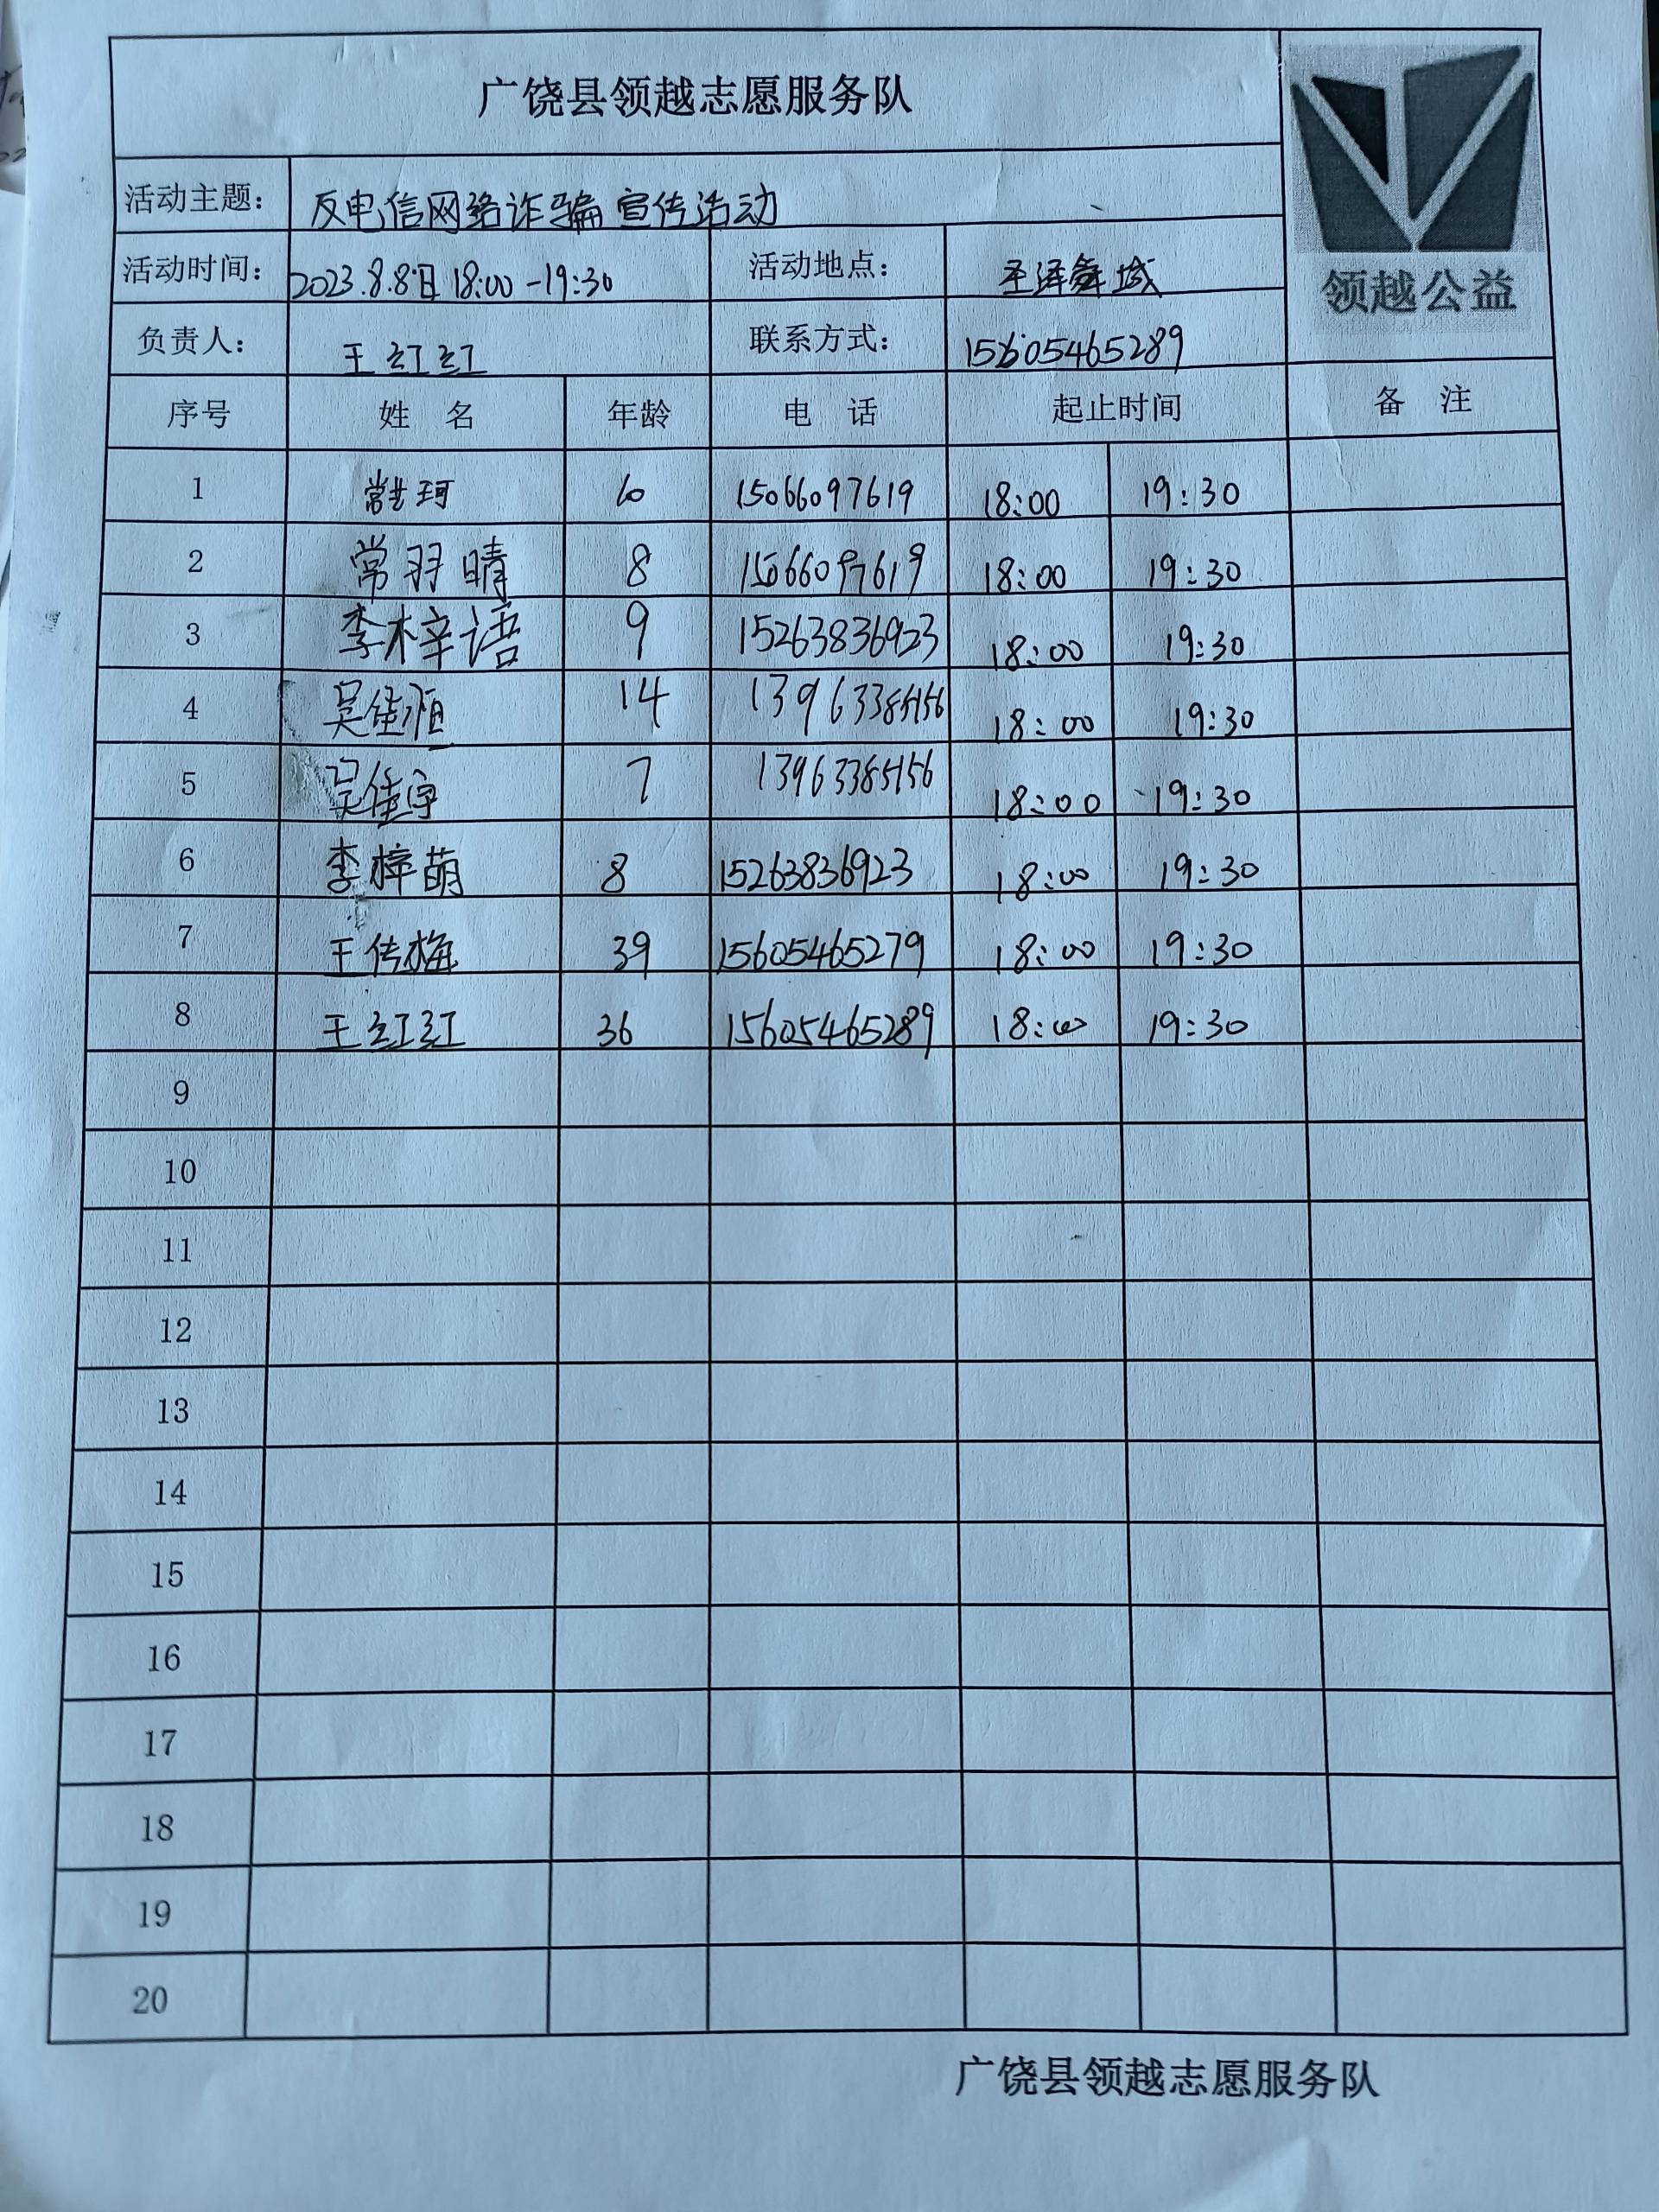 广饶县领越志愿服务队
领越公益
活动主题： 反电信网络诈骗宣传活动
活动时间： 2023.8.8日 18:00-19:30 活动地点： 圣泽舞域
负责人： 王红红 联系方式： 15605465289
序号 姓 名 年龄 电 话 起止时间 备 注
1 15066097619 18:00 19:30
2 常羽晴 8 15066097619 18:00 19:30
3 李梓语 9 15263836923 18:00 19:30
4 吴佳恒 14 13963385156 18:00 19:30
5 吴佳宇 7 13963385156 18:00 19:30
6 李梓萌 8 15263836923 18:00 19:30
7 王传梅 39 15605465279 18:00 19:30
8 王红红 36 15605465289 18:00 19:30
9
10
11
12
13
14
15
16
17
18
19
20
广饶县领越志愿服务队